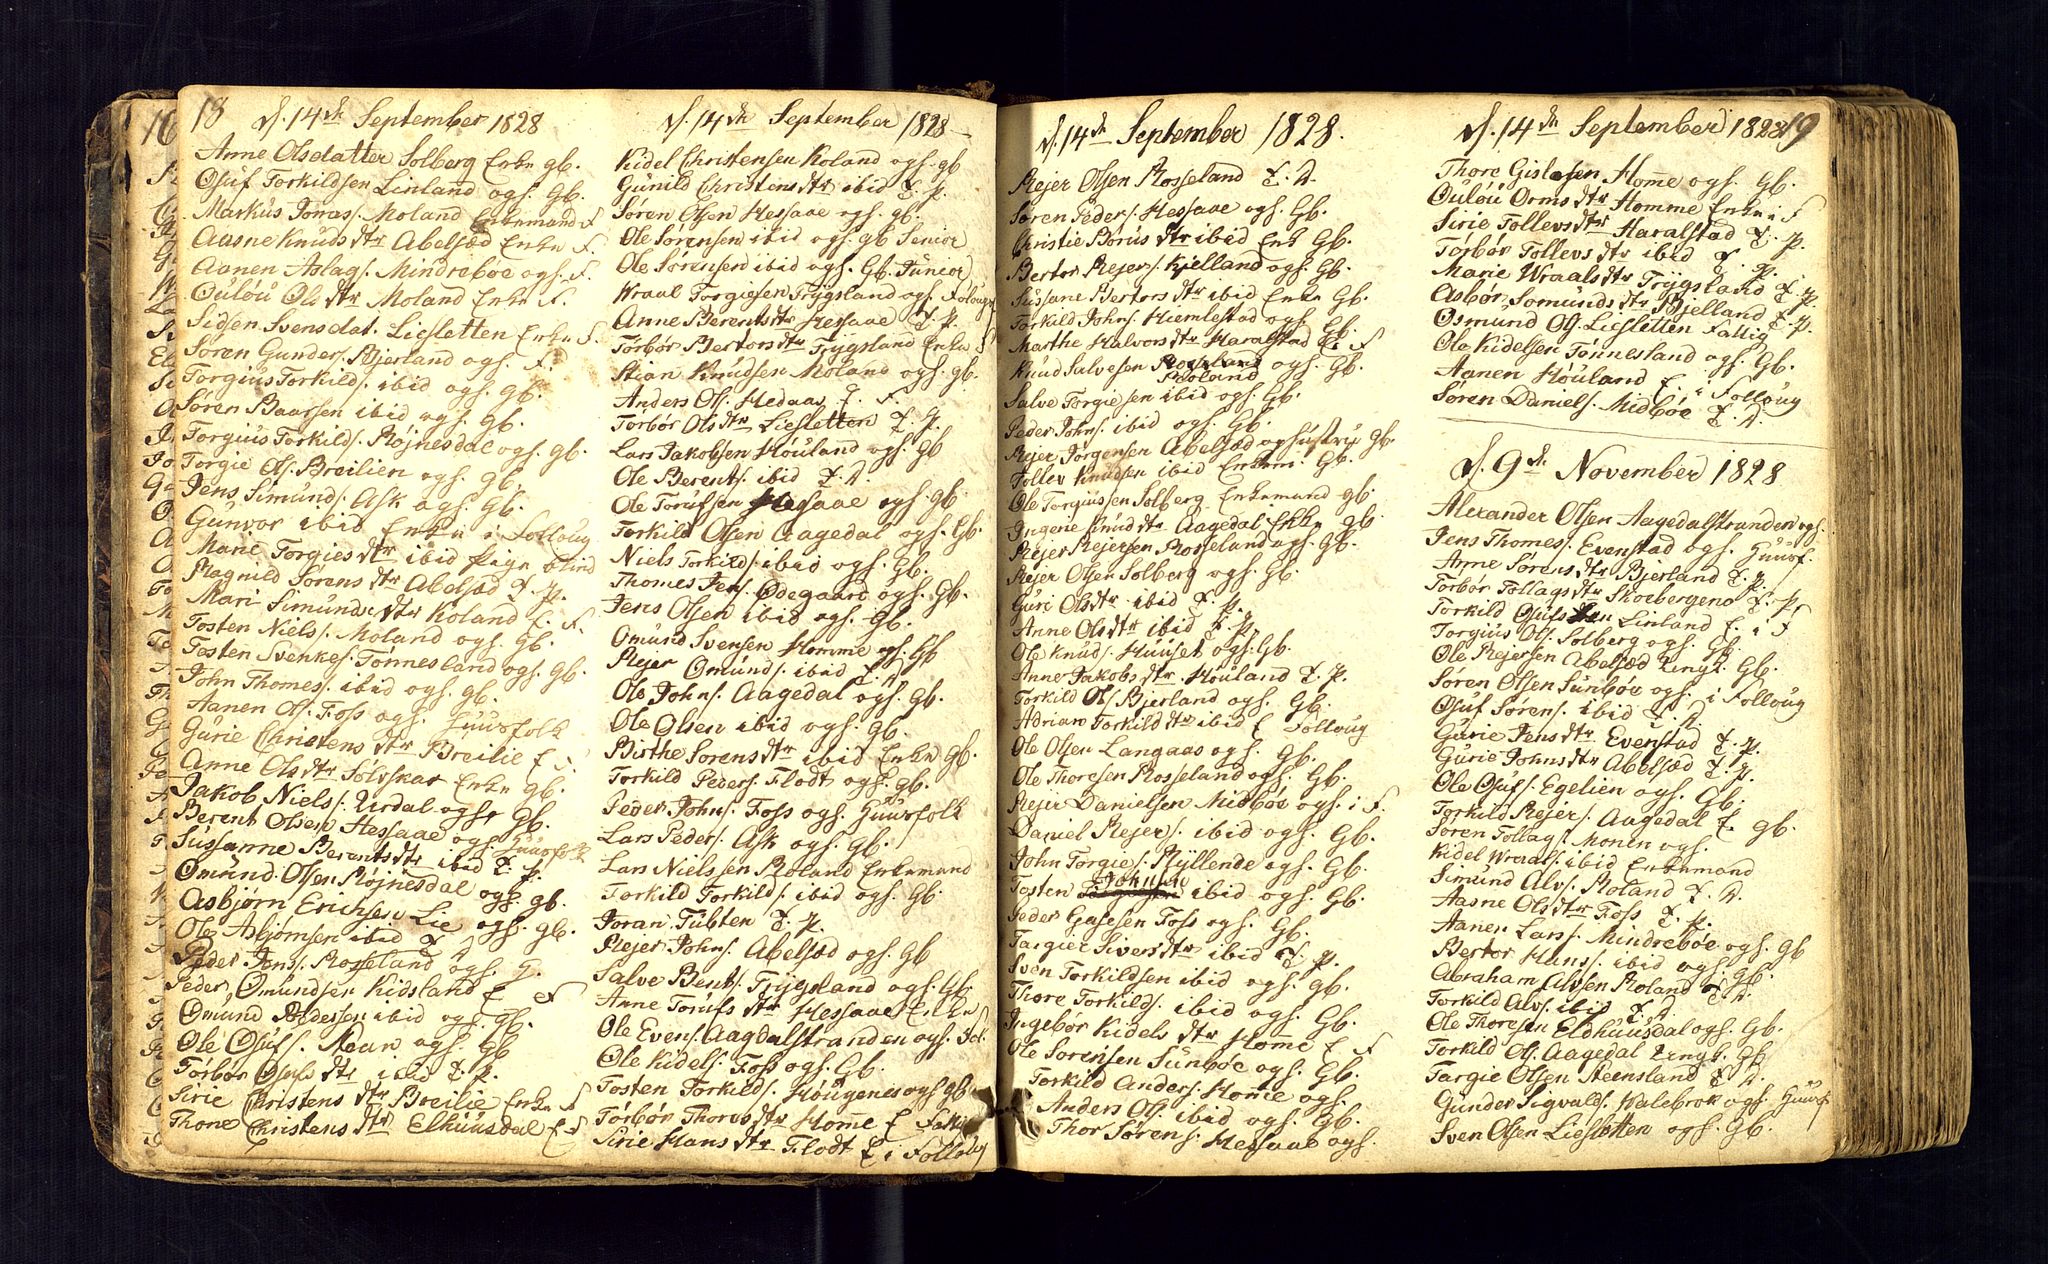 18
d. 14de September 1828
Anne Olsdatter Solberg Enke gb.
Osuf Torkildsen Linland ogs. Gb.
Markus Jonas: Moland Enkemand F
Aasne Knuds dtr Abelsæd Enke F.
Aanen Aslags: Mindreböe ogs. F.
Oulöu Ols dtr Moland Enke F.
Sidsen Svensdat. Liesletten Enke F.
Sören Gunders: Bjerland ogs. F.
Torgius Torkild: ibid ogs. gb.
Sören Baarsen ibid ogs. gb.
Torgius Torkilds: Röjnesdal ogs. gb.
Torgie Ols: Breilien ogs. gb.
Jens Simunds: Ask ogs. Gb.
Gunvor ibid Enke i Folloug
Marie Torgies dtr ibid Pige blind
Magnild Sörens dtr Abelsæd T. p.
Mari Simunds dtr Roland E. F.
Tosten Niels: Moland ogs. Gb.
Tosten Svenkes: Tönnesland ogs. Gb.
John Thomes: ibid ogs. gb.
Aanen Ols: Foss ogs. Huusfolk
Gurie Christens dtr Breilie E F.
Anne Ols dtr Sölvskar Enke gb.
Jakob Niels: Urdal ogs. Gb.
Berent Olsen Hessaae ogs. Huusfolk
Sussanne Berents dtr ibid T. p.
Omund Olsen Röjnesdal ogs. gb.
Asbjörn Erichsen Lie ogs. gb.
Ole Asbjörnsen ibid T. D.
Peder Jens: Rosseland ogs. G.
Peder Omundsen Kidsland E F
Omund Pedersen ibid ogs. Gb.
Ole Osufs: Kean ogs. Gb
Torbör Osufs dtr ibid T. p.
Sirie Christens dtr Breilie Enke F
Thone Christens dtr Elhuusdal E F
d. 14de September 1828
Kidel Christensen Roland ogs. gb
Gunild Christens dtr ibid T. p.
Sören Olsen Hessaae ogs. gb.
Ole Sörensen ibid ogs. gb Senior
Ole Sörensen ibid ogs. Gb. Junior
Wraal Torgiesen Trygsland ogs. Folloug
Anne Berents dtr Hessaae T. p.
Torbör Bertors dtr Trygsland Enke F
Stian Knudsen Moland ogs. gb.
Anders Ols: Hedaas E. F.
Torbör Ols dtr Liesletten T. p.
Lars Jakobsen Höuland ogs. Gb
Ole Berents: ibid T. D.
Ole Torufsen Hessaae ogs. gb
Torkild Olsen Aagedal ogs. Gb.
Niels Torkild: ibid ogs. Gb.
Thomes Jens: Ödegaard ogs. Gb.
Jens Olsen ibid ogs. Gb.
Omund Svensen Homme ogs. Gb
Rejer Omunds: ibid T. D
Ole Johns: Aagedal ogs. Gb.
Ole Olsen ibid ogs. Gb.
Birthe Sörens dtr ibid Enke gb.
Torkild Peders: Flodt ogs. gb.
Peder Johns: Foss ogs. Huusfolk
Lars Peders: Ask ogs. Gb.
Lars Nielssen Roland Enkemand
Torkild Torkilds: ibid ogs. Gb
Joran Tubten T. p.
Rejer Johns: Abelsæd ogs. Gb
Salve Bents: Trygsland ogs. Gb
Anne Torufs dtr Hessaae Enke
Ole Evens: Aagdalstranden ogs. Fol
Ole Kidels: Foss ogs. Gb.
Tosten Torkilds: Höugenes ogs gb
Torbör Thores dtr Home E
Sirie Hans dtr Flodt E i Folloug
d. 14de September 1828.
Rejer Olsen Rosseland T. D.
Sören Peders: Hessaae ogs. Gb.
Christie Börus dtr ibid Enk Gb.
Bertor Rejers: Kjelland ogs. Gb.
Sussane Bertors dtr ibid Enke Gb.
Torkild Johns: Hiemlestad ogs. Gb.
Marthe Halvors dtr Haralstad E. F
Knud Salvesen Rosseland ogs. Gb.
Roland
Salve Torgiesen ibid ogs. Gb.
Peder Johns: ibid ogs. Gb.
Rejer Jörgensen Abelsæd og hustru Gb.
Follev Knudsen ibid Enkem: Gb.
Ole Torgiussen Solberg Enkemand gb.
Ingerie Knud dtr Aagedal Enke gb.
Rejer Rejersen Rosseland ogs. Gb.
Rejer Olsen Solberg ogs. Gb.
Guri Ols dtr ibid T. p.
Anne Ols dtr ibid T. p.
Ole Knuds: Huuset ogs. Gb.
Anne Jakobs dtr Höuland T. p.
Torkild Ols: Bjerland ogs. Gb.
Adrian Torkild dtr ibid E Folloug
Ole Olsen Langaas ogs. Gb.
Ole Thoresen Rosseland ogs. Gb.
Rejer Danielsen Midböe ogs. i F.
Daniel Rejers: ibid ogs. Gb.
John Torgies: Kyllende ogs. Gb.
Johnsen
Tosten ibid ogs. Gb.
Peder Gasesen Foss ogs. Gb.
Targier Sivers dtr ibid T. p.
Sven Torkildsen ibid ogs. gb.
Thore Torkilds: ibid ogs. Gb.
Ingebör Kidels dtr Home E F
Ole Sorensen Sunböe ogs. Gb.
Torkild Anders: Home ogs.
Anders Ols: ibid ogs. Gb.
Thor Sörens: Hessaae ogs.
d. 14de September 1828
19
Thore Gislesen Home ogs. Gb.
Oulöu Orms dtr Homme Enke i F
Sirie Tollevs dtr Haralstad T. p.
Torbör Tollevs dtr ibid T. p.
Marie Wraals dtr Trygsland T. p.
Asbör Somunds dtr Bjelland T. p.
Osmund Ols: Liesletten Fattig
Ole Kidelsen Tönnesland ogs. Gb.
Aanen Höuland E. i Folloug
Sören Daniels: Midböe T. D.
d. 9de November 1828
Alexander Olsen Aagedalstranden ogs.
Jens Thomes: Evenstad ogs. Huusf.
Anne Sörens dtr Bjerland T. p.
Torbör Tollags dtr Skoebergene T. p.
Torkild Osufsen Linland E. i F
Torgius Ols: Solberg ogs. Gb.
Ole Rejersen Abelsæd Ungk. Gb.
Sören Olsen Sunböe ogs. i Folloug
Osuf Sörens: ibid T. D.
Gurie Jens dtr Evenstad T. p.
Gurie Johns dtr Abelsæd T. p.
Ole Osufs: Egelien ogs. Gb.
Torkild Rejers: Aagedal E. gb.
Sören Tollags: Monen ogs.
Kidel Wraals: ibid Enkemand
Simund Alvs: Roland T. D.
Aasne Ols dtr Foss T. p.
Aanen Lars: Mindreböe ogs. Gb
Bertor Hans: ibid ogs. Gb.
Abraham Alvsen Roland T. D.
Torkild Alvs: ibid T. D
Ole Thoresen Eldhuusdal ogs. Gb.
Torkild Ols: Aagedal Ungk. Gb
Targie Olsen Steensland T. D.
Gunder Sigvalds: Walebrok ogs. Huusf
Sven Olsen Liesletten ogs. Gb.